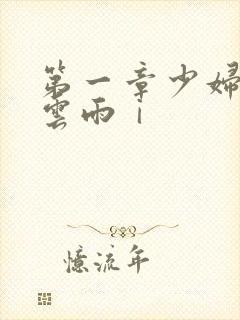 第一章少婦
雲雨｜
憶流年